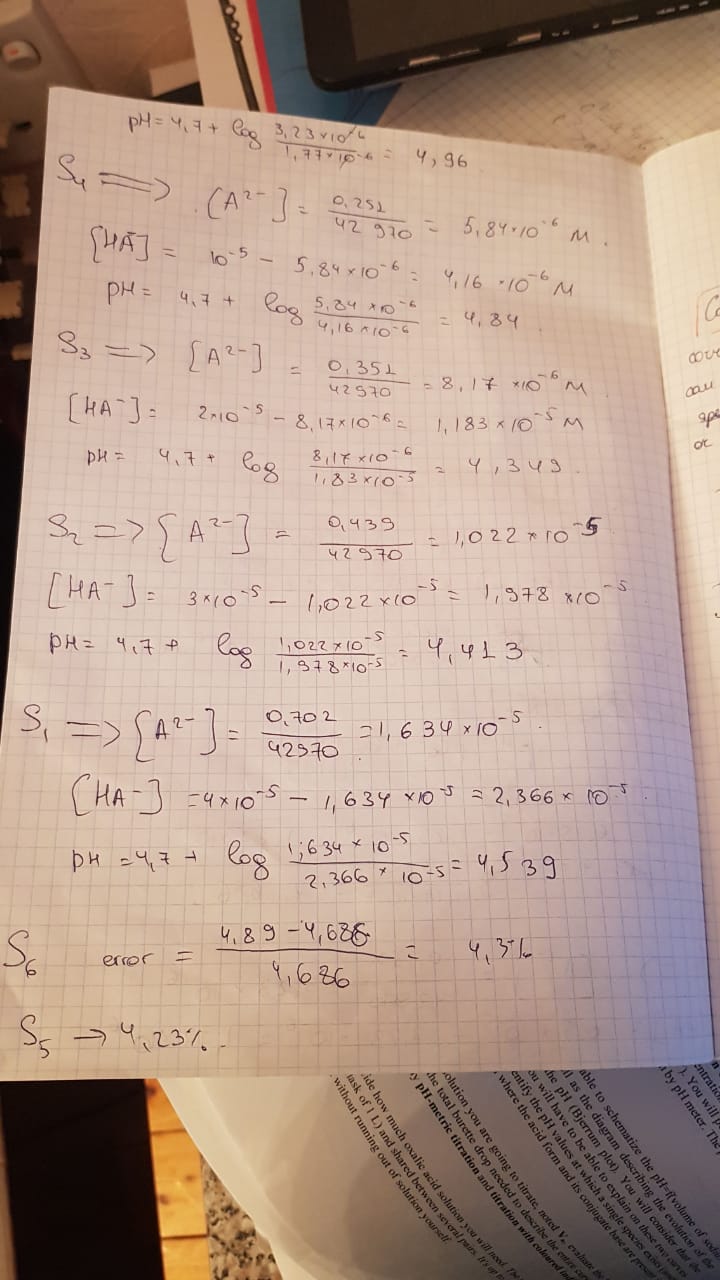 pH = 4,7 + log 3,23×10⁻⁶ / 1,77×10⁻⁶ = 4,96
S₄ ⟹ [A²⁻] = 0,251 / 42 970 = 5,84×10⁻⁶ M.
[HA⁻] = 10⁻⁵ − 5,84×10⁻⁶ = 4,16 ×10⁻⁶ M
pH = 4,7 + log 5,84 ×10⁻⁶ / 4,16×10⁻⁶ = 4,84
S₃ ⟹ [A²⁻] = 0,351 / 42970 = 8,17 ×10⁻⁶ M
[HA⁻] = 2×10⁻⁵ − 8,17×10⁻⁶ = 1,183×10⁻⁵ M
pH = 4,7 + log 8,17×10⁻⁶ / 1,83×10⁻⁵ = 4,349.
S₂ ⟹ [A²⁻] = 0,439 / 42970 = 1,022×10⁻⁵
[HA⁻] = 3×10⁻⁵ − 1,022×10⁻⁵ = 1,978 ×10⁻⁵
pH = 4,7 + log 1,022×10⁻⁵ / 1,978×10⁻⁵ = 4,413
S₁ ⟹ [A²⁻] = 0,702 / 42970 = 1,634×10⁻⁵.
[HA⁻] = 4×10⁻⁵ − 1,634 ×10⁻⁵ = 2,366× 10⁻⁵.
pH = 4,7 + log 1,634×10⁻⁵ / 2,366×10⁻⁵ = 4,539
S₆ error = 4,89 − 4,686 / 4,686 = 4,3%
S₅ → 4,23%.
or
able to schematize the pH=f(volume of
as the diagram describing the evolution of the
the pH (Bjerrum plot). You will consider that the
will have to be able to explain on these two
the pH values at which a single species
where the acid form and its conjugate base are
by pH meter. The
). You will
solution you are going to titrate, noted V
the total burette drop needed to describe the entire
by pH-metric titration and titration with coloured
how much oxalic acid solution you will need.
of 1 L) and shared between several pairs. It's up
without running out of solution yourself.